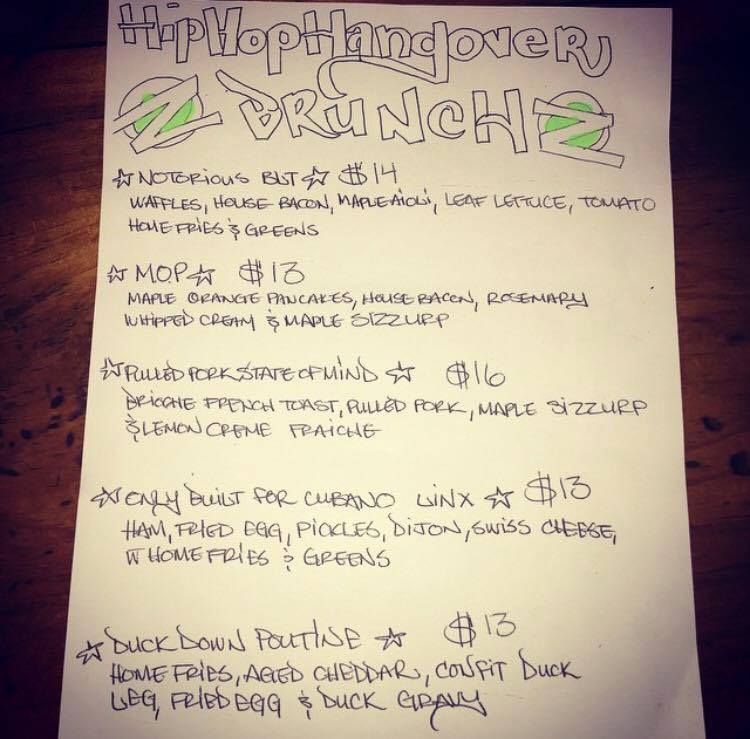 HipHopHangover
BRUNCH
☆ NOTORIOUS BLT ☆ $14
WAFFLES, HOUSE BACON, MAPLE AIOLI, LEAF LETTUCE, TOMATO
HOME FRIES & GREENS
☆ M.O.P ☆ $13
MAPLE ORANGE PANCAKES, HOUSE BACON, ROSEMARY
WHIPPED CREAM & MAPLE SIZZURP
☆ PULLED PORK STATE OF MIND ☆ $16
BRIOCHE FRENCH TOAST, PULLED PORK, MAPLE SIZZURP
& LEMON CREME FRAICHE
☆ ONLY BUILT FOR CUBANO LINX ☆ $13
HAM, FRIED EGG, PICKLES, DIJON, SWISS CHEESE,
W HOME FRIES & GREENS
☆ DUCK DOWN POUTINE ☆ $13
HOME FRIES, AGED CHEDDAR, CONFIT DUCK
LEG, FRIED EGG & DUCK GRAVY